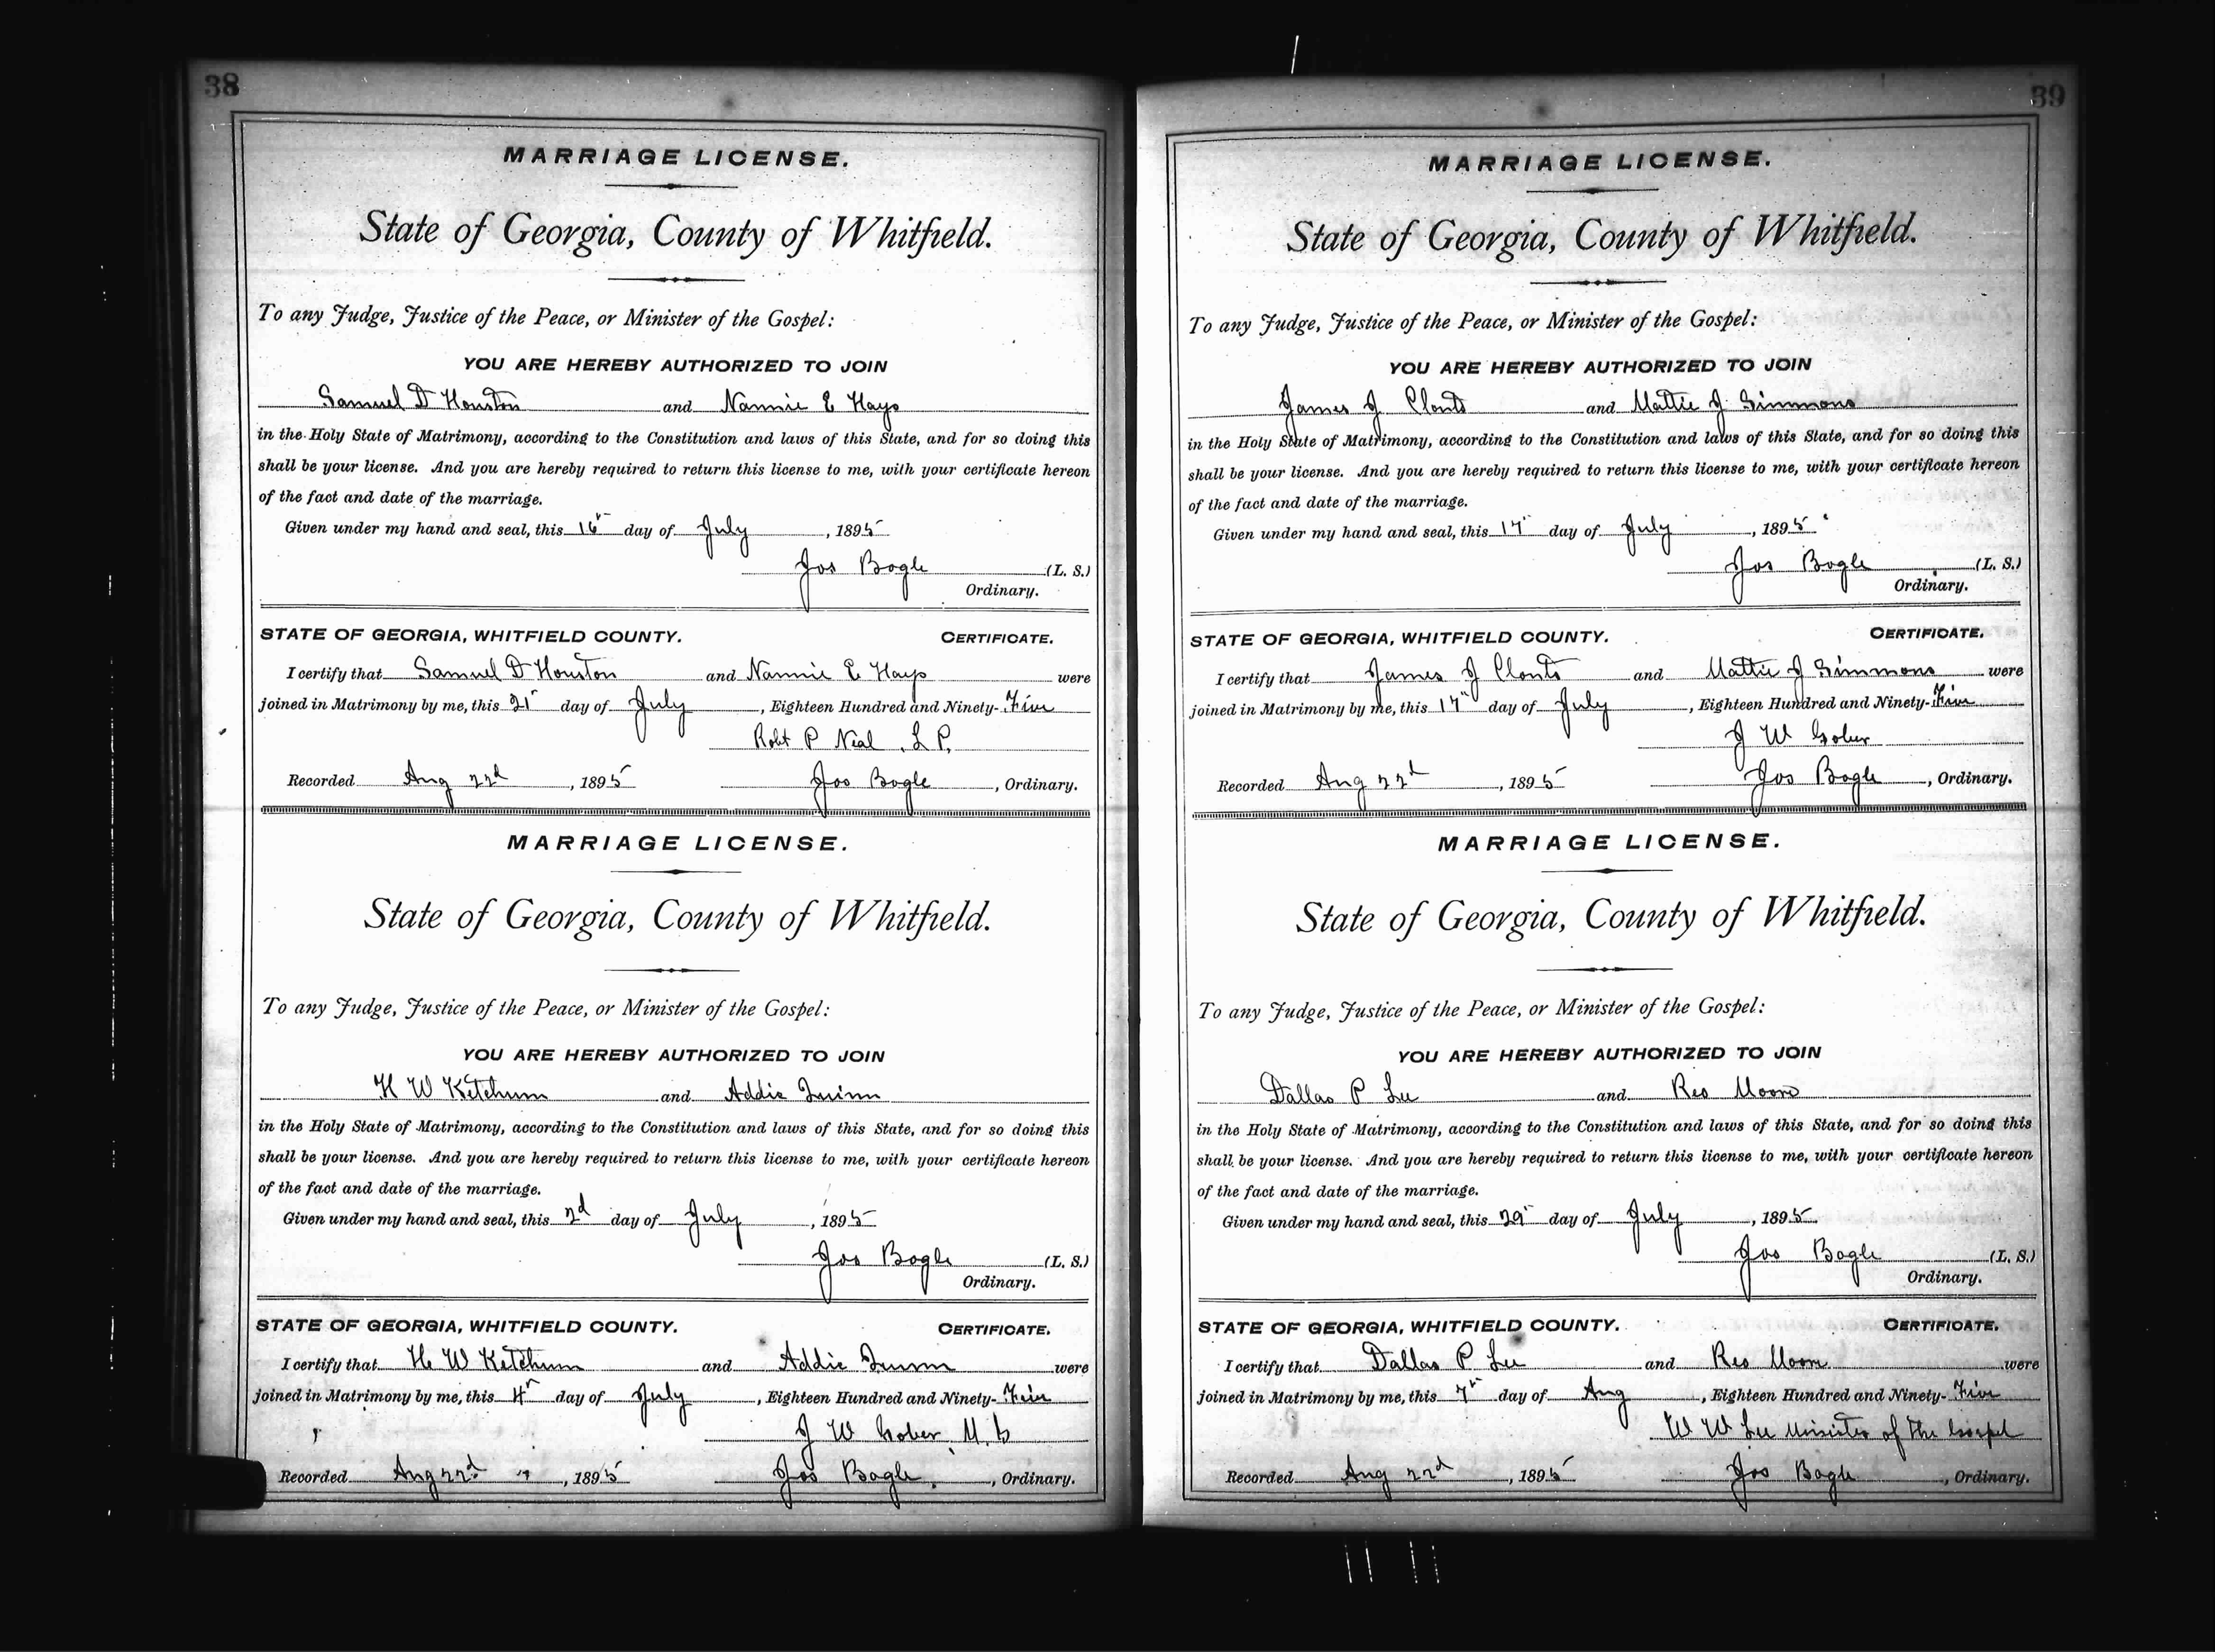 38
MARRIAGE LICENSE.
State of Georgia, County of Whitfield.
To any Judge, Justice of the Peace, or Minister of the Gospel:
YOU ARE HEREBY AUTHORIZED TO JOIN
Samuel D Houston and Nannie E Hays
in the Holy State of Matrimony, according to the Constitution and laws of this State, and for so doing this
shall be your license. And you are hereby required to return this license to me, with your certificate hereon
of the fact and date of the marriage.
Given under my hand and seal, this 16" day of July, 1895
Jos Bogle (L. S.)
Ordinary.
STATE OF GEORGIA, WHITFIELD COUNTY. CERTIFICATE.
I certify that Samuel D Houston and Nannie E Hays were
joined in Matrimony by me, this 21" day of July, Eighteen Hundred and Ninety-Five
Robt P Neal L P.
Recorded Aug 22d, 1895 Jos Bogle, Ordinary.
MARRIAGE LICENSE.
State of Georgia, County of Whitfield.
To any Judge, Justice of the Peace, or Minister of the Gospel:
YOU ARE HEREBY AUTHORIZED TO JOIN
H W Ketchum and Addie Quinn
in the Holy State of Matrimony, according to the Constitution and laws of this State, and for so doing this
shall be your license. And you are hereby required to return this license to me, with your certificate hereon
of the fact and date of the marriage.
Given under my hand and seal, this 2d day of July, 1895
Jos Bogle (L. S.)
Ordinary.
STATE OF GEORGIA, WHITFIELD COUNTY. CERTIFICATE.
I certify that H W Ketchum and Addie Quinn were
joined in Matrimony by me, this 4" day of July, Eighteen Hundred and Ninety-Five
J W Gober, M. G
Recorded Aug 22d, 1895 Jos Bogle, Ordinary.
39
MARRIAGE LICENSE.
State of Georgia, County of Whitfield.
To any Judge, Justice of the Peace, or Minister of the Gospel:
YOU ARE HEREBY AUTHORIZED TO JOIN
James J Clonts and Mattie J Simmons
in the Holy State of Matrimony, according to the Constitution and laws of this State, and for so doing this
shall be your license. And you are hereby required to return this license to me, with your certificate hereon
of the fact and date of the marriage.
Given under my hand and seal, this 17" day of July, 1895
Jos Bogle (L. S.)
Ordinary.
STATE OF GEORGIA, WHITFIELD COUNTY. CERTIFICATE.
I certify that James J Clonts and Mattie J Simmons were
joined in Matrimony by me, this 17" day of July, Eighteen Hundred and Ninety-Five
J W Gober
Recorded Aug 22d, 1895 Jos Bogle, Ordinary.
MARRIAGE LICENSE.
State of Georgia, County of Whitfield.
To any Judge, Justice of the Peace, or Minister of the Gospel:
YOU ARE HEREBY AUTHORIZED TO JOIN
Dallas P Lee and Res Moore
in the Holy State of Matrimony, according to the Constitution and laws of this State, and for so doing this
shall be your license. And you are hereby required to return this license to me, with your certificate hereon
of the fact and date of the marriage.
Given under my hand and seal, this 29" day of July, 1895.
Jos Bogle (L. S.)
Ordinary.
STATE OF GEORGIA, WHITFIELD COUNTY. CERTIFICATE.
I certify that Dallas P Lee and Res Moore were
joined in Matrimony by me, this 7" day of Aug, Eighteen Hundred and Ninety-Five
W W Lee Minister of the Gospel
Recorded Aug 22d, 1895 Jos Bogle, Ordinary.